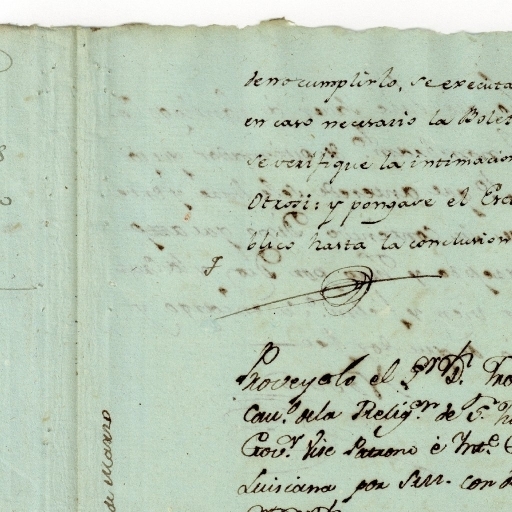 de no cumplirlo, se executa
en caso necesario la Bolet
se verifique la intimacion
Otrosi: y pongase el Esc
blico hasta la conclusion
Proveyolo el S.ʳ D.
Cav.º de la Relig.ⁿ de S.ⁿ
Gov.ʳ Vice Patrono è Int.ᵉ
Luisiana por S.M. con
de Marzo